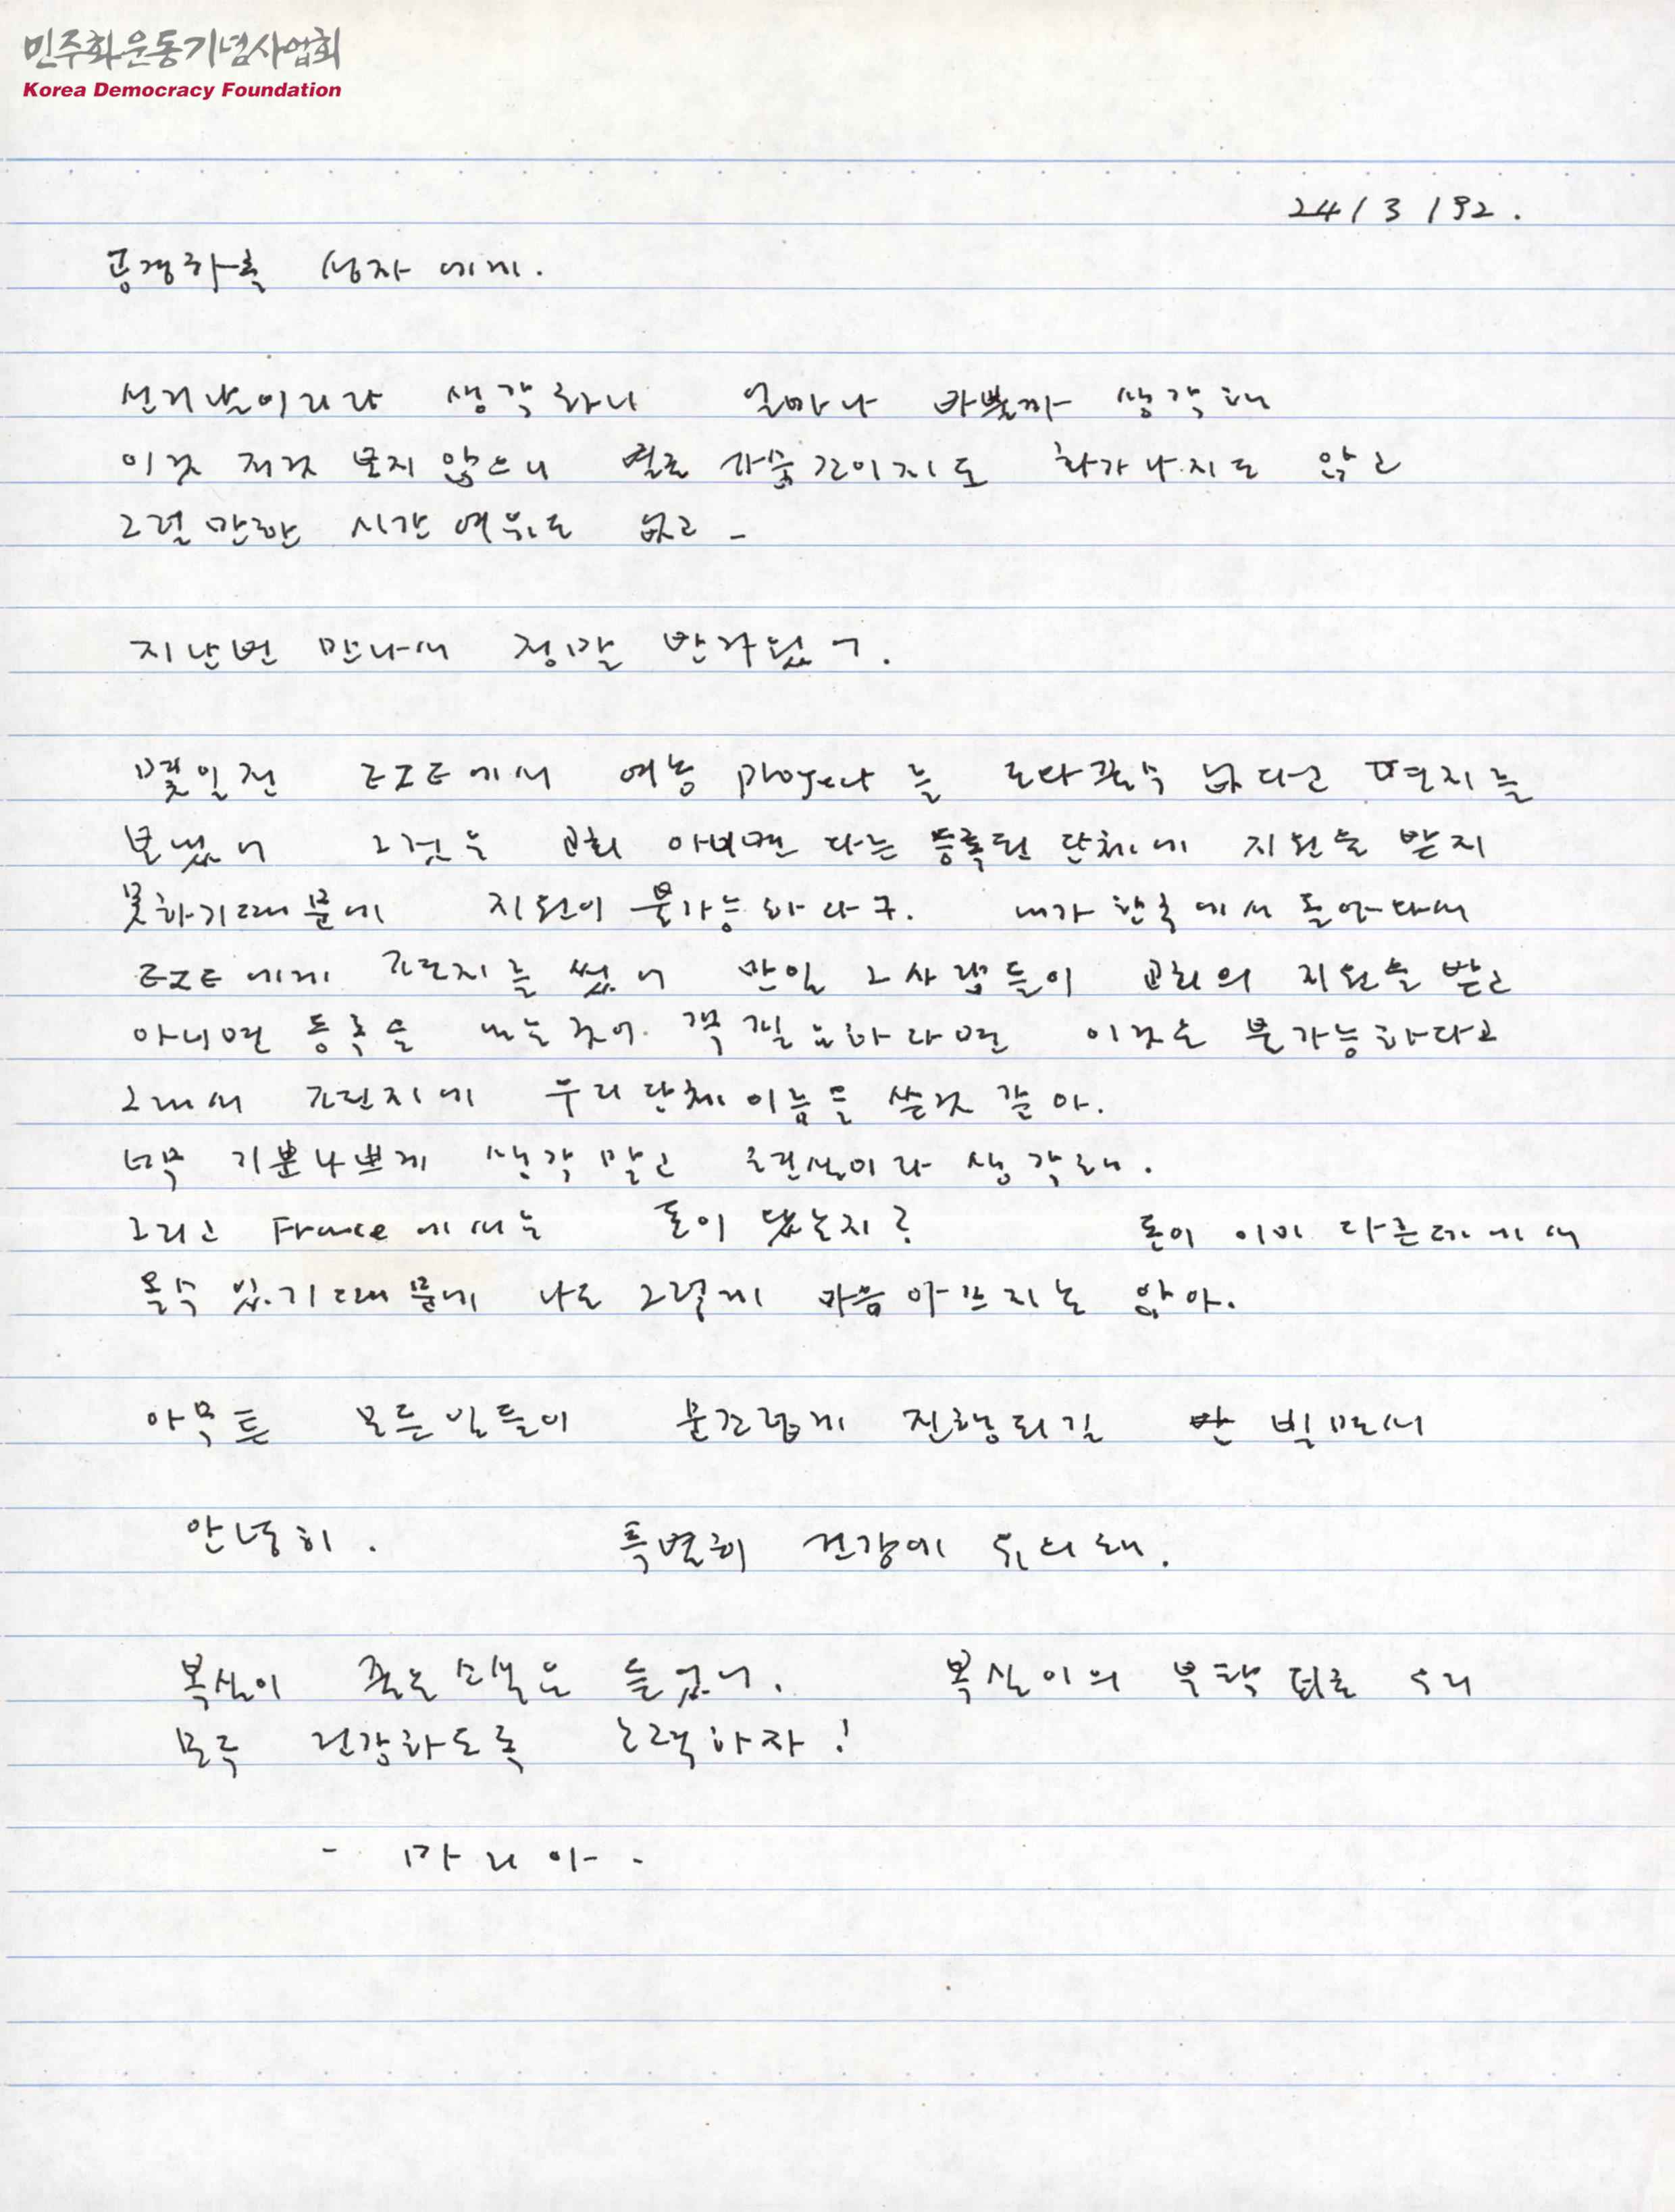 민주화운동기념사업회
Korea Democracy Foundation
24/3/92.
공경하올 상자 에게.
선거날이리라 생각하니 얼마나 바쁠까 생각해
이것 저것 묻지 않으니 별로 가슴 도 화가나지도 않고
그럴만한 시간 여유도 없고 -
지난번 만나서 정말 반가웠어.
몇일전 EZE에서 여농 project를 도와줄수 없다고 편지를
보냈어 그것은 교회 아니면 다른 등록된 단체에 지원을 받지
못하기때문에 지원이 불가능하다구. 내가 한국에서 돌아와서
EZE에게 편지를 썼어 만일 그사람들이 교회의 지원을 받고
아니면 등록을 내는것이 꼭 필요하다면 이것은 불가능하다고
그래서 편지에 우리단체 이름을 쓸것 같아.
너무 기분나쁘게 생각말고 현실이라 생각해.
그리고 France에서는 돈이 왔는지? 돈이 이미 다른데에서
올수 있기때문에 나도 그렇게 마음아프지는 않아.
아무튼 모든일들이 순조롭게 진행되길 빌면서
안녕히. 특별히 건강에 주의해.
복실이 죽은소식은 들었어. 복실이의 부탁 대로 우리
모두 건강하도록 노력하자!
- 마리아 -